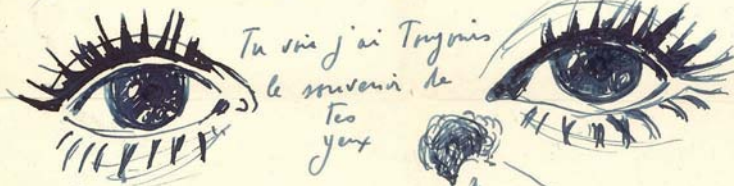 Tu vois j'ai Toujours
le souvenir de
Tes
yeux